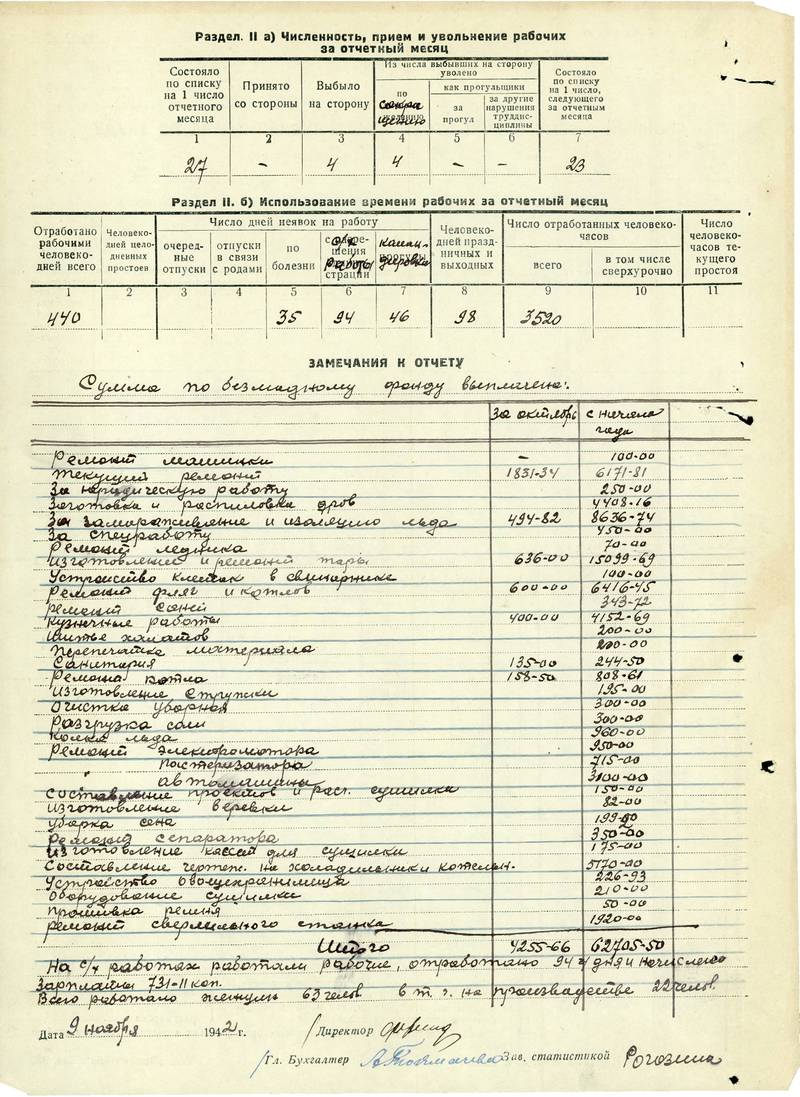 Раздел. II а) Численность, прием и увольнение рабочих
за отчетный месяц
Состояло по списку на 1 число отчетного месяца
Принято со стороны
Выбыло на сторону
Из числа выбывших на сторону уволено
по сокращению
как прогульщики
за прогул
за другие нарушения труддисциплины
Состояло по списку на 1 число, следующего за отчетным месяца
1 2 3 4 5 6 7
27 – 4 4 – – 23
Раздел II. б) Использование времени рабочих за отчетный месяц
Отработано рабочими человеко-дней всего
Человеко-дней целодневных простоев
Число дней неявок на работу
очередные отпуски
отпуски в связи с родами
по болезни
с/х работы
командировка
Человеко-дней праздничных и выходных
Число отработанных человеко-часов
всего
в том числе сверхурочно
Число человеко-часов текущего простоя
1 2 3 4 5 6 7 8 9 10 11
440 35 94 46 98 3520
ЗАМЕЧАНИЯ К ОТЧЕТУ
Сумма по безлюдному фонду выплачена:
За октябрь с начала года
Ремонт машинки – 100-00
Текущий ремонт 1831-34 6171-81
За юридическую работу 250-00
Заготовка и распиловка дров 4408-16
За замораживание и изоляцию льда 494-82 8636-74
За спецработу 450-00
Ремонт ледника 70-00
Изготовление и ремонт тары 636-00 15099-69
Устройство клеток в свинарнике 100-00
Ремонт фляг и котлов 600-00 6416-45
Ремонт саней 343-72
Кузнечные работы 400-00 4152-69
Шитье халатов 200-00
Перепечатка материала 200-00
Санитария 135-00 244-50
Ремонт котла 158-50 808-61
Изготовление стружки 195-00
Очистка уборной 300-00
Разгрузка соли 300-00
Колка льда 960-00
Ремонт электромотора 950-00
" пастеризатора 715-00
" автомашины 3100-00
Составление проектов и расч. сушилки 150-00
Изготовление веревки 82-00
Уборка сена 199-90
Ремонт сепаратора 350-00
Изготовление кассет для сушилки 175-00
Составление чертеж. на холодильник и котельн. 5170-00
Устройство овощехранилища 226-93
Оборудование сушилки 210-00
Прошивка ремня 50-00
Ремонт сверлильного станка 1920-00
Итого 4255-66 62705-50
На с/х работах работали рабочие, отработано 94 ч/дня и начислено
Зарплаты 731-11 коп.
Всего работало женщин 63 челов. в т. ч. на производстве 22 челов.
Дата 9 ноября 1942 г. Директор
Гл. Бухгалтер Зав. статистикой Рогозина